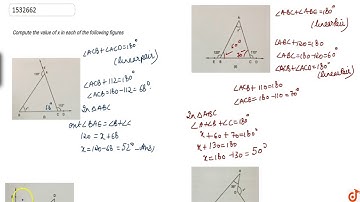 1532662
Compute the value of x in each of the following figures
∠ACB+∠ACD=180°
(linear pair)
∠ACB+112=180°
∠ACB=180-112=68°
In △ABC
ext∠BAE=∠B+∠C
120=x+68
x=120-68=52° -Ans)
∠ABC+∠ABE=180°
(linear pair)
∠ABC+120=180
∠ABC=180-120=60°
∠ACB+∠ACD=180°
(linear pair)
∠ACB+110=180
∠ACB=180-110=70°
In △ABC
∠A+∠B+∠C=180°
x+60+70=180°
x+130=180
x=180-130=50°